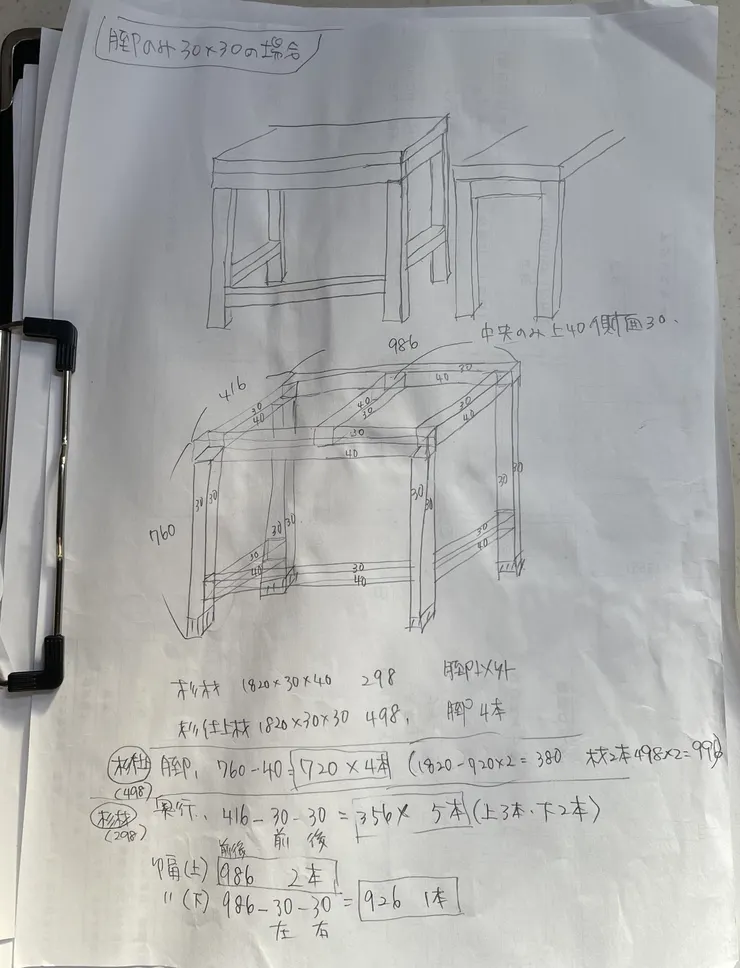 脚のみ30×30の場合
中央のみ上40側面30.
986
416
30
40
30
40
40
30
30
40
30
40
760
30
30
30
30
30
30
30
30
30
40
30
40
30
40
杉材 1820×30×40 298 脚以外
杉仕上材 1820×30×30 498, 脚4本
杉仕 (498) 脚, 760-40=720×4本 (1820-720×2=380 材2本498×2=996)
杉材 (298) 奥行, 416-30-30=356× 5本(上3本、下2本)
前 後
前後
巾(上) 986 2本
〃(下) 986-30-30=926 1本
左 右